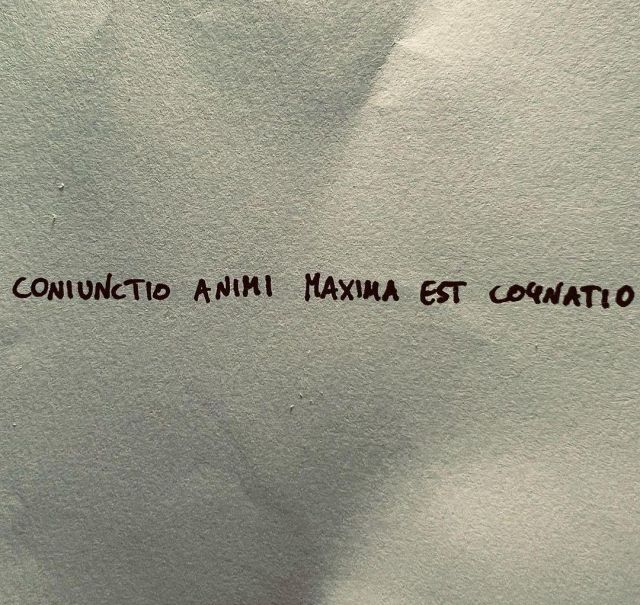 CONIUNCTIO ANIMI MAXIMA EST COGNATIO